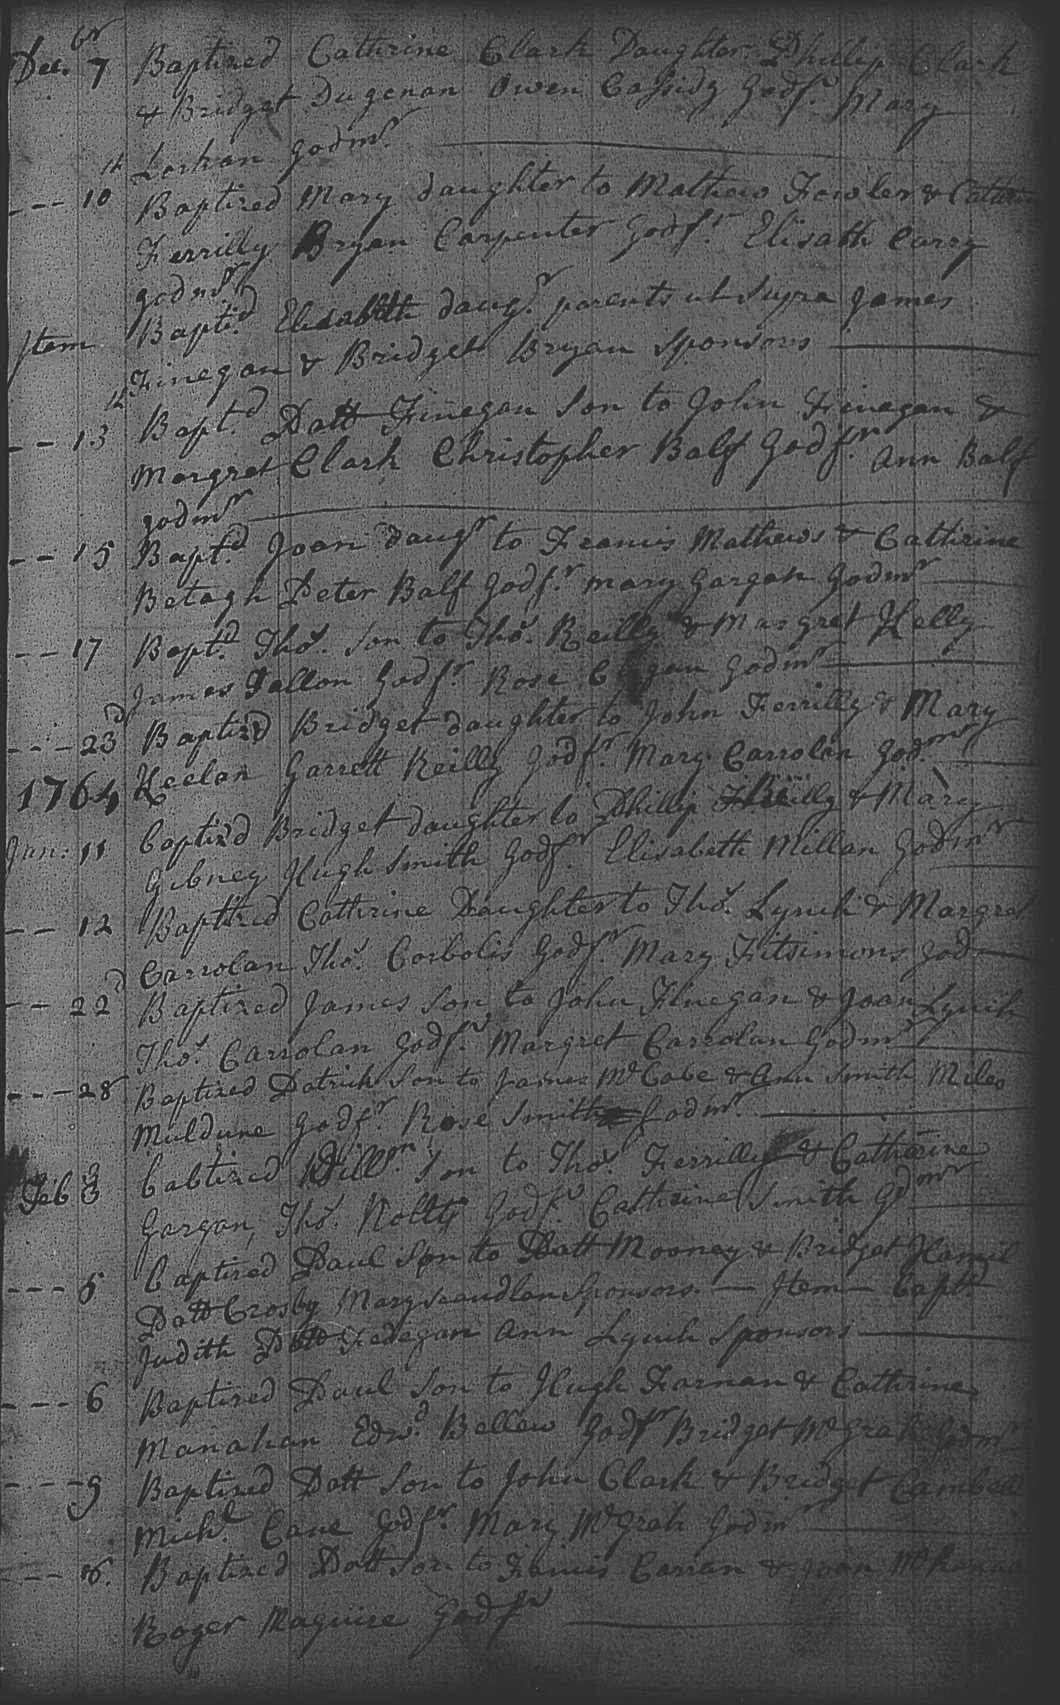 Dec. br 7 Baptized Cathrine Clark Daughter Phillip Clark
& Bridget Dugenan Owen Cassidy Godfr. Mary
Lorkan Godmr.
--- 10 th Baptized Mary daughter to Mathew Fowler & Cathrin
Ferrilly Bryan Carpenter Godfr. Elisath Carry
godmr
Item Baptd. Elisabeth daugr. parents ut Supra James
Finegan & Bridget Bryan Sponsors
-- 13 th Baptd. Patt Finegan Son to John Finegan &
Margret Clark Christopher Balf Godfr. Ann Balf
godmr
-- 15 Baptd. Joan daugr to Francis Mathews & Cathrine
Betagh Peter Balf Godfr. Mary Gargan Godmr
--- 17 Baptd. Thos. Son to Thos. Reilly & Margret Kelly
James Fallon Godfr. Rose Godmr
--- 23 d Baptizd Bridget daughter to John Ferrilly & Mary
1764 Keelan Garrett Reilly Godfr. Mary Carrolan God.mr
Jan: 11 baptizd Bridget daughter to Phillip Reilly & Mary
Gibney Hugh Smith Godfr. Elisabeth Millan Godmr
-- 12 Baptized Cathrine Daughter to Thos. Lynch & Margret
Carrolan Thos. Corbolis Godfr Mary Fitsimons God
-- 22 d Baptized James Son to John Finegan & Joan Lynch
Thos. Carrolan Godfr. Margret Carrolan Godmr
--- 28 Baptized Patrick Son to James McCabe & Ann Smith Miles
Muldune Godfr. Rose Smith Godmr.
Feb 3 babtized Willm. Son to Thos. Ferrilly & Catharine
Gargan, Thos. Nolty Godfr. Cathrine Smith Gdmr
--- 5 baptized Paul Son to Patt Mooney & Bridget Hamil
Patt Crosby Mary Scandlan Sponsors. — Item — bapt.
Judith Patt Fedegan Ann Lynch Sponsors
--- 6 Baptized Paul Son to Hugh Farnan & Cathrine
Manahan Edwd. Bellew Godfr Bridget McGrah Godmr
--- 9 Baptized Patt Son to John Clark & Bridget Cambell
Michl. Cane Godfr. Mary McGrah Godmr
Baptized Patt Son to Francis Carran & Joan
Roger Maguire Godfr